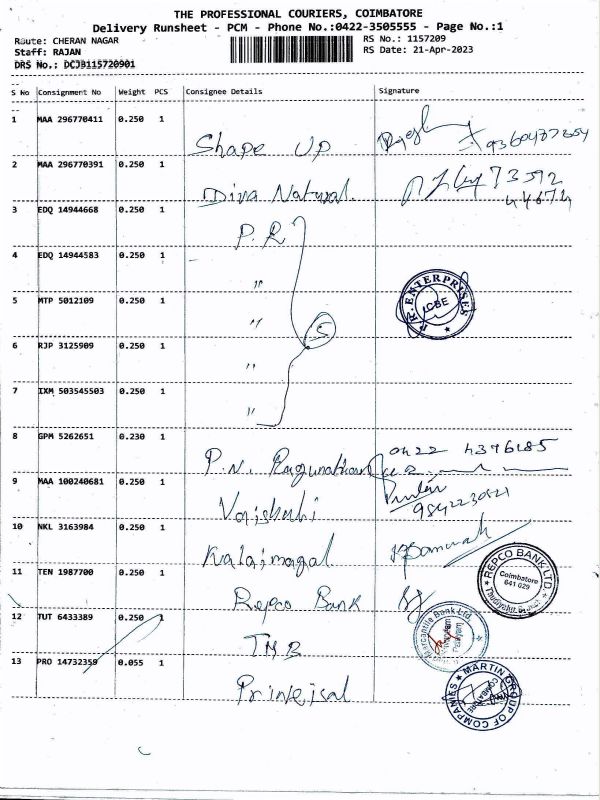 THE PROFESSIONAL COURIERS, COIMBATORE
Delivery Runsheet - PCM - Phone No.:0422-3505555 - Page No.:1
Route: CHERAN NAGAR RS No.: 1157209
Staff: RAJAN RS Date: 21-Apr-2023
DRS No.: DCJB115720901
S No Consignment No Weight PCS Consignee Details Signature
1 MAA 296770411 0.250 1 Shape Up
2 MAA 296770391 0.250 1 Diva Natural
3 EDQ 14944668 0.250 1 P.R
4 EDQ 14944583 0.250 1 "
5 MTP 5012109 0.250 1 " 5
R.ENTERPRISES CBE
6 RJP 3125909 0.250 1 "
7 IXM 503545503 0.250 1 "
8 GPM 5262651 0.230 1 P.N. 0422 4376185
9 MAA 100240681 0.250 1
10 NKL 3163984 0.250 1 Kalaimagal
11 TEN 1987700 0.250 1 Repco Bank
REPCO BANK LTD Coimbatore 641 029
12 TUT 6433389 0.250 1 TMB
Mercantile Bank Ltd.
13 PRO 14732359 0.055 1
MARTIN GROUP OF COMPANIES